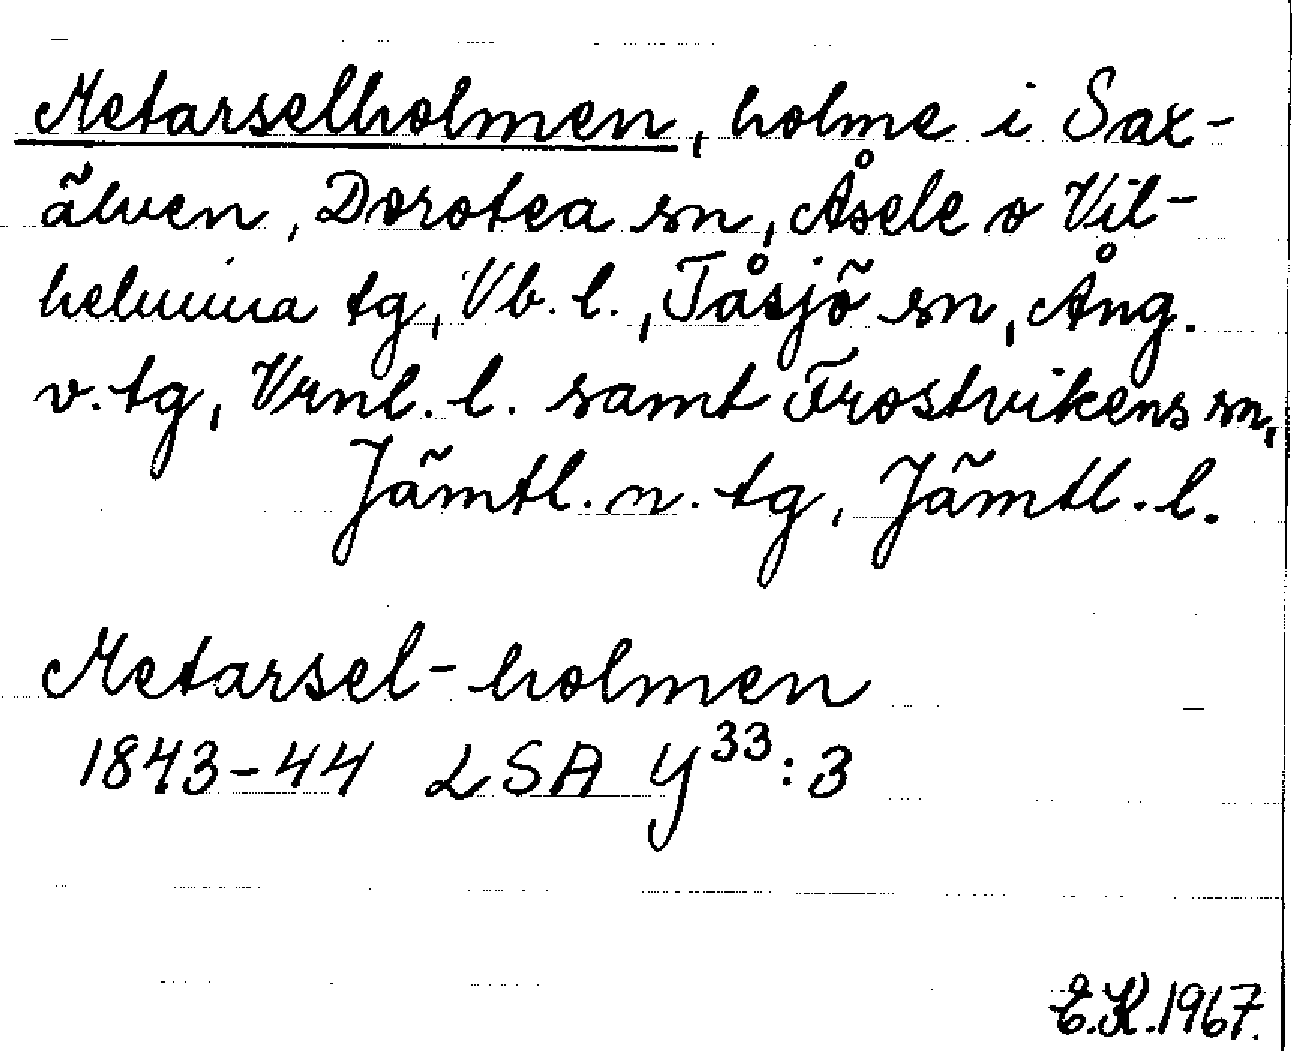 Metarselholmen, holme i Sax-
älven, Dorotea sn, Åsele o Vil-
helmina tg, Vb. l., Tåsjö sn, Ång.
v. tg, Vrnl. l. samt Frostvikens sn,
Jämtl. n. tg, Jämtl. l.
Metarsel-holmen
1843-44 LSA Y³³:3
E.K. 1967.